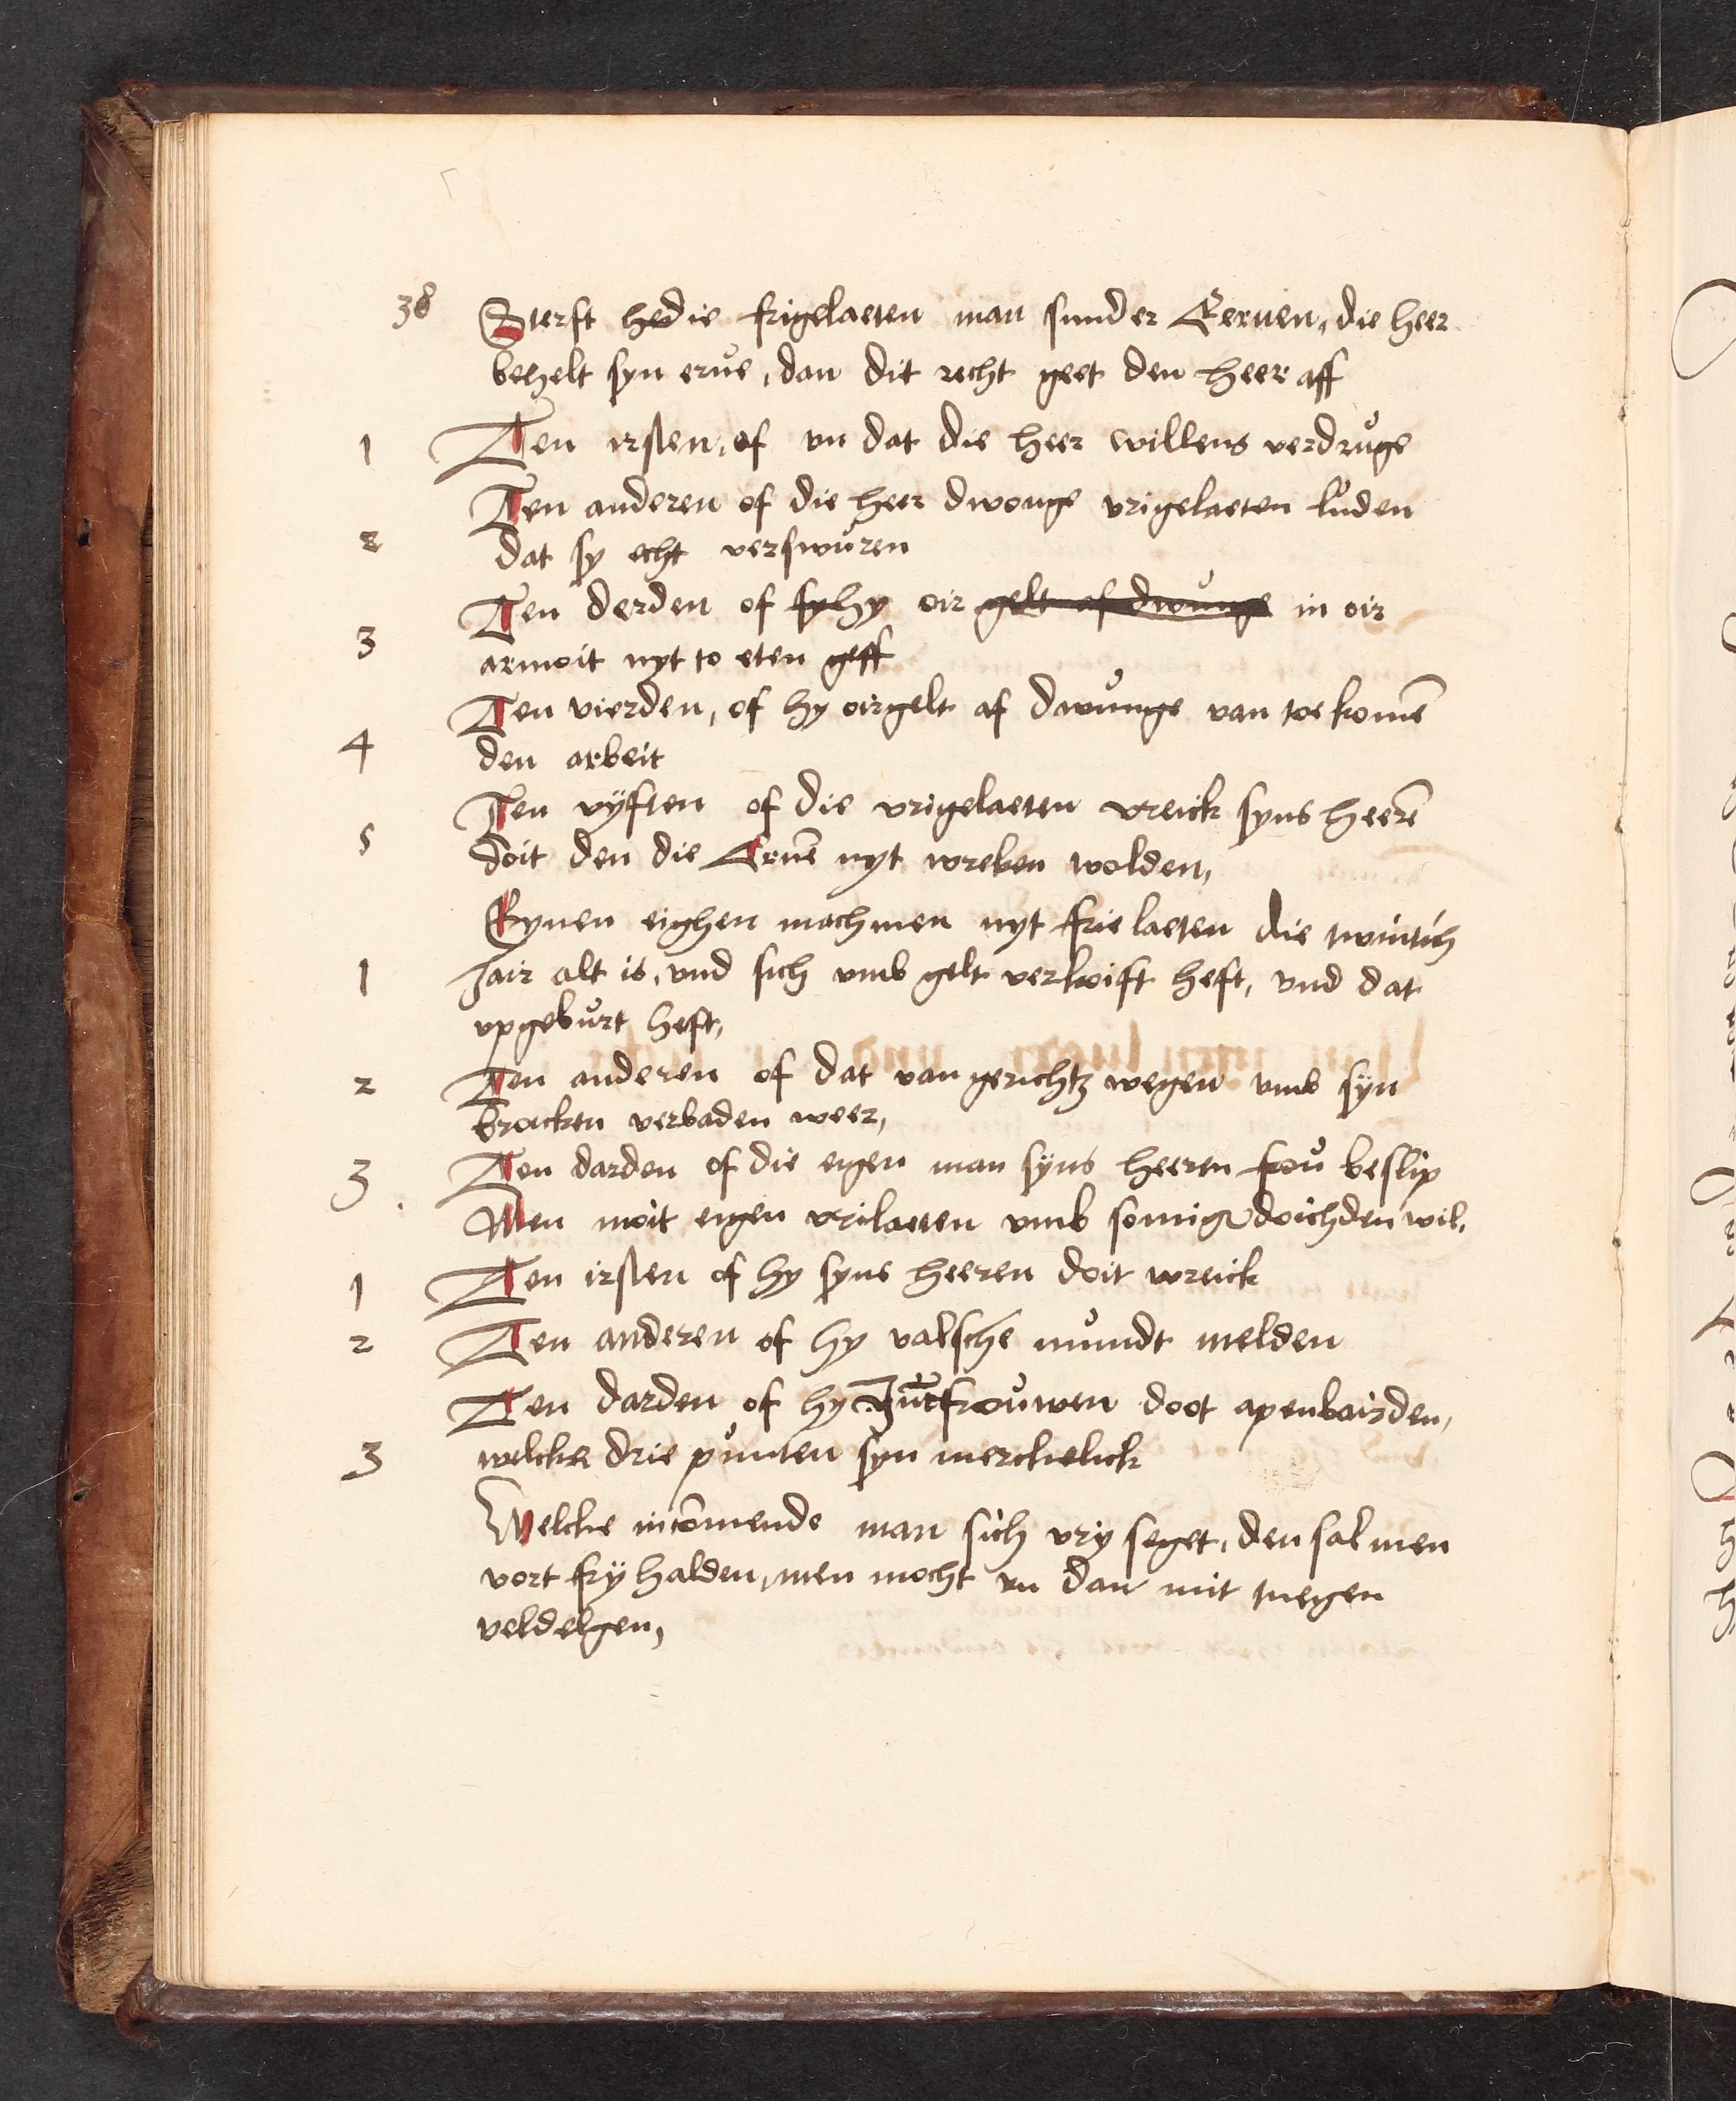 38 Sterft hedie frigelaeten man sunder Eeruen, die heer
behelt syn erue, dan dit recht geet den heer aff
1 Ten irsten, of un dat die heer willens verdruge
Ten anderen of die heer dwonge vrigelaeten luden
2 dat sy echt verswuren
Ten derden of sy hy oir gelt af dwunge in oir
3 armoit nyt to eten geff
Ten vierden, of hy oirgelt af dwunge van toekomē
4 den arbeit
Ten vÿften of die vrigelaeten wreick syns heerē
5 doit den die Eruē nyt wreken wolden,
Eynen eighen mach men nyt frie laeten die twintich
1 Jair alt is, vnd sich vmb gelt verkoift heft, vnd dat
vpgeburt heft,
2 Ten anderen of dat van gerichtz wegen vmb sÿn
broicken verbaden weer,
3 Ten darden of die eigen man sÿns heeren frou beslip
Men moit eigen vrilaeten vmb somige doichden wil.
1 Ten irsten of hy syns heeren doit wreick
2 Ten anderen of hy valsche mundt melden
Ten darden of hy Juncfrouwen doot apenbairden,
3 welcke drie punten syn merckelick
Welche incōmende man sich vry seget, den sal men
vort frÿ halden, men mocht un dan mit tuegen
veldelgen,